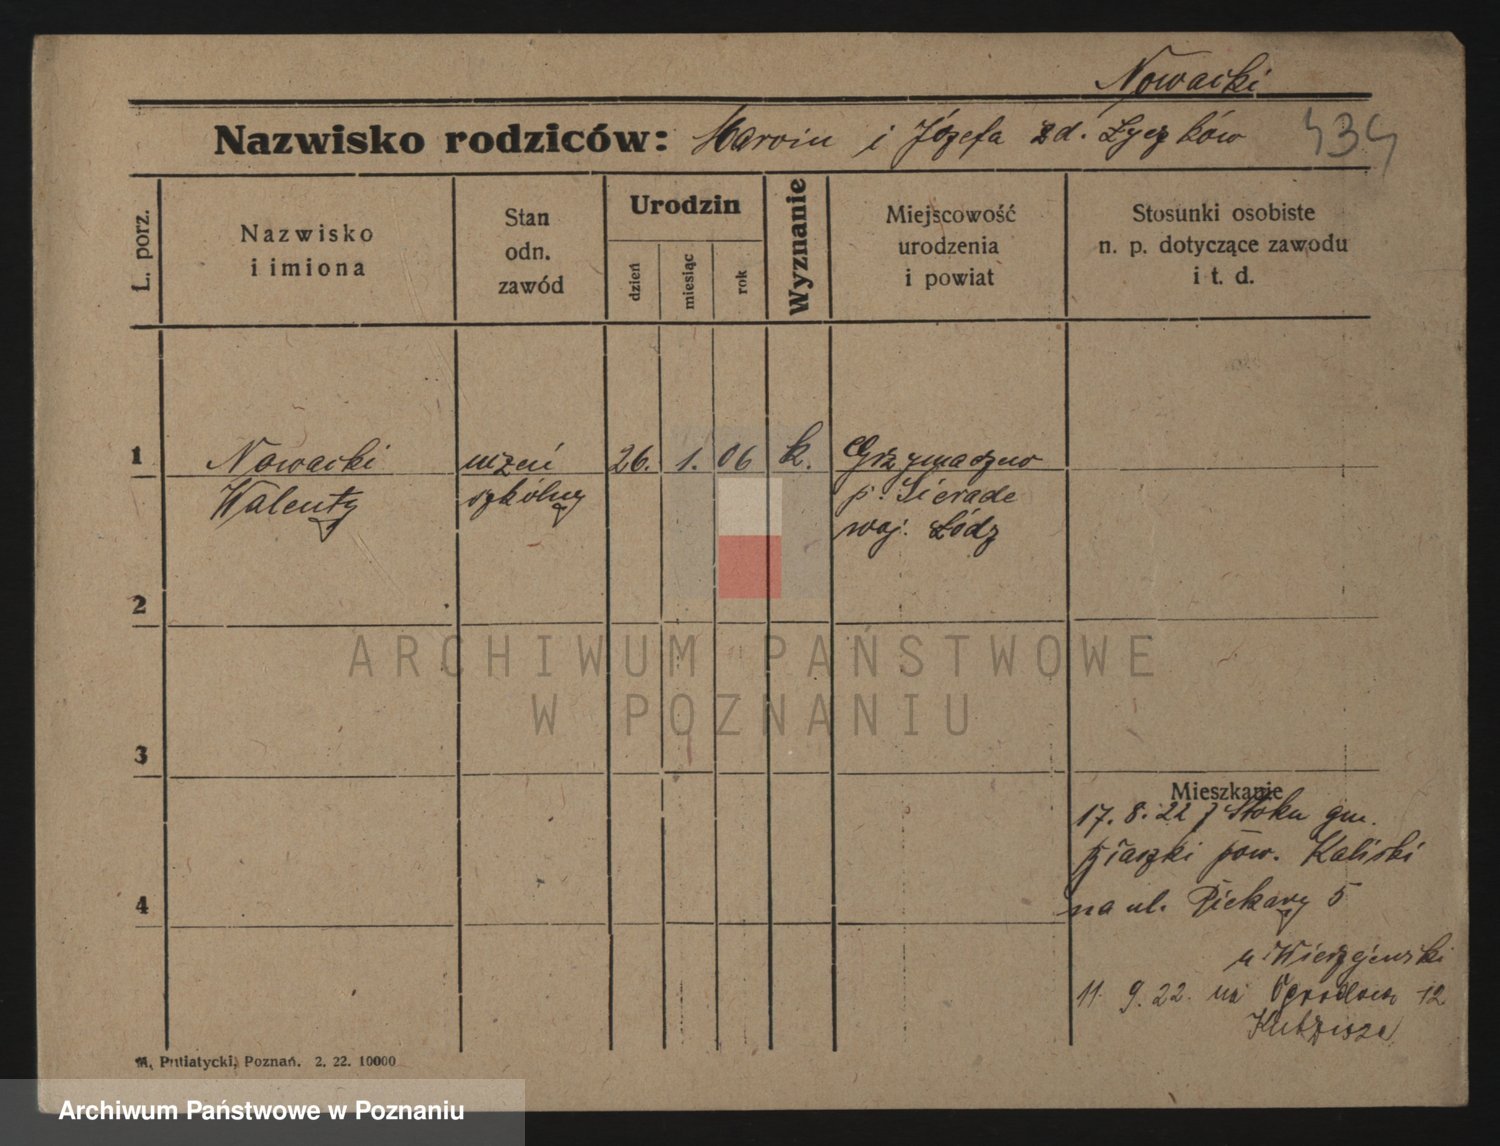 Nowacki
Nazwisko rodziców: Marcin i Józefa zd. Łyczków 434
L. porz.
Nazwisko i imiona
Stan odn. zawód
Urodzin
dzień miesiąc rok
Wyznanie
Miejscowość urodzenia i powiat
Stosunki osobiste n. p. dotyczące zawodu i t. d.
1 Nowacki uczeń 26. 1. 06 k.
Walenty szkólny
p. Sieradz
woj. Łódz
2
3
Mieszkanie
17. 8. 22 z Stoku gm.
pow. Kaliski
4
na ul. Piekary 5
u Wierzejewski
11 9. 22 na Ogrodowa 12
M. Putiatycki, Poznań. 2. 22. 10000
ARCHIWUM PAŃSTWOWE
W POZNANIU
Archiwum Państwowe w Poznaniu